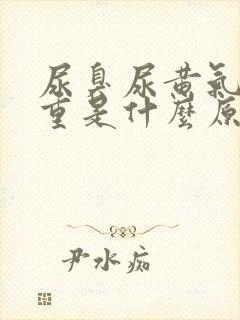 尿臭尿黃氣
重是什麼原
尹水痴